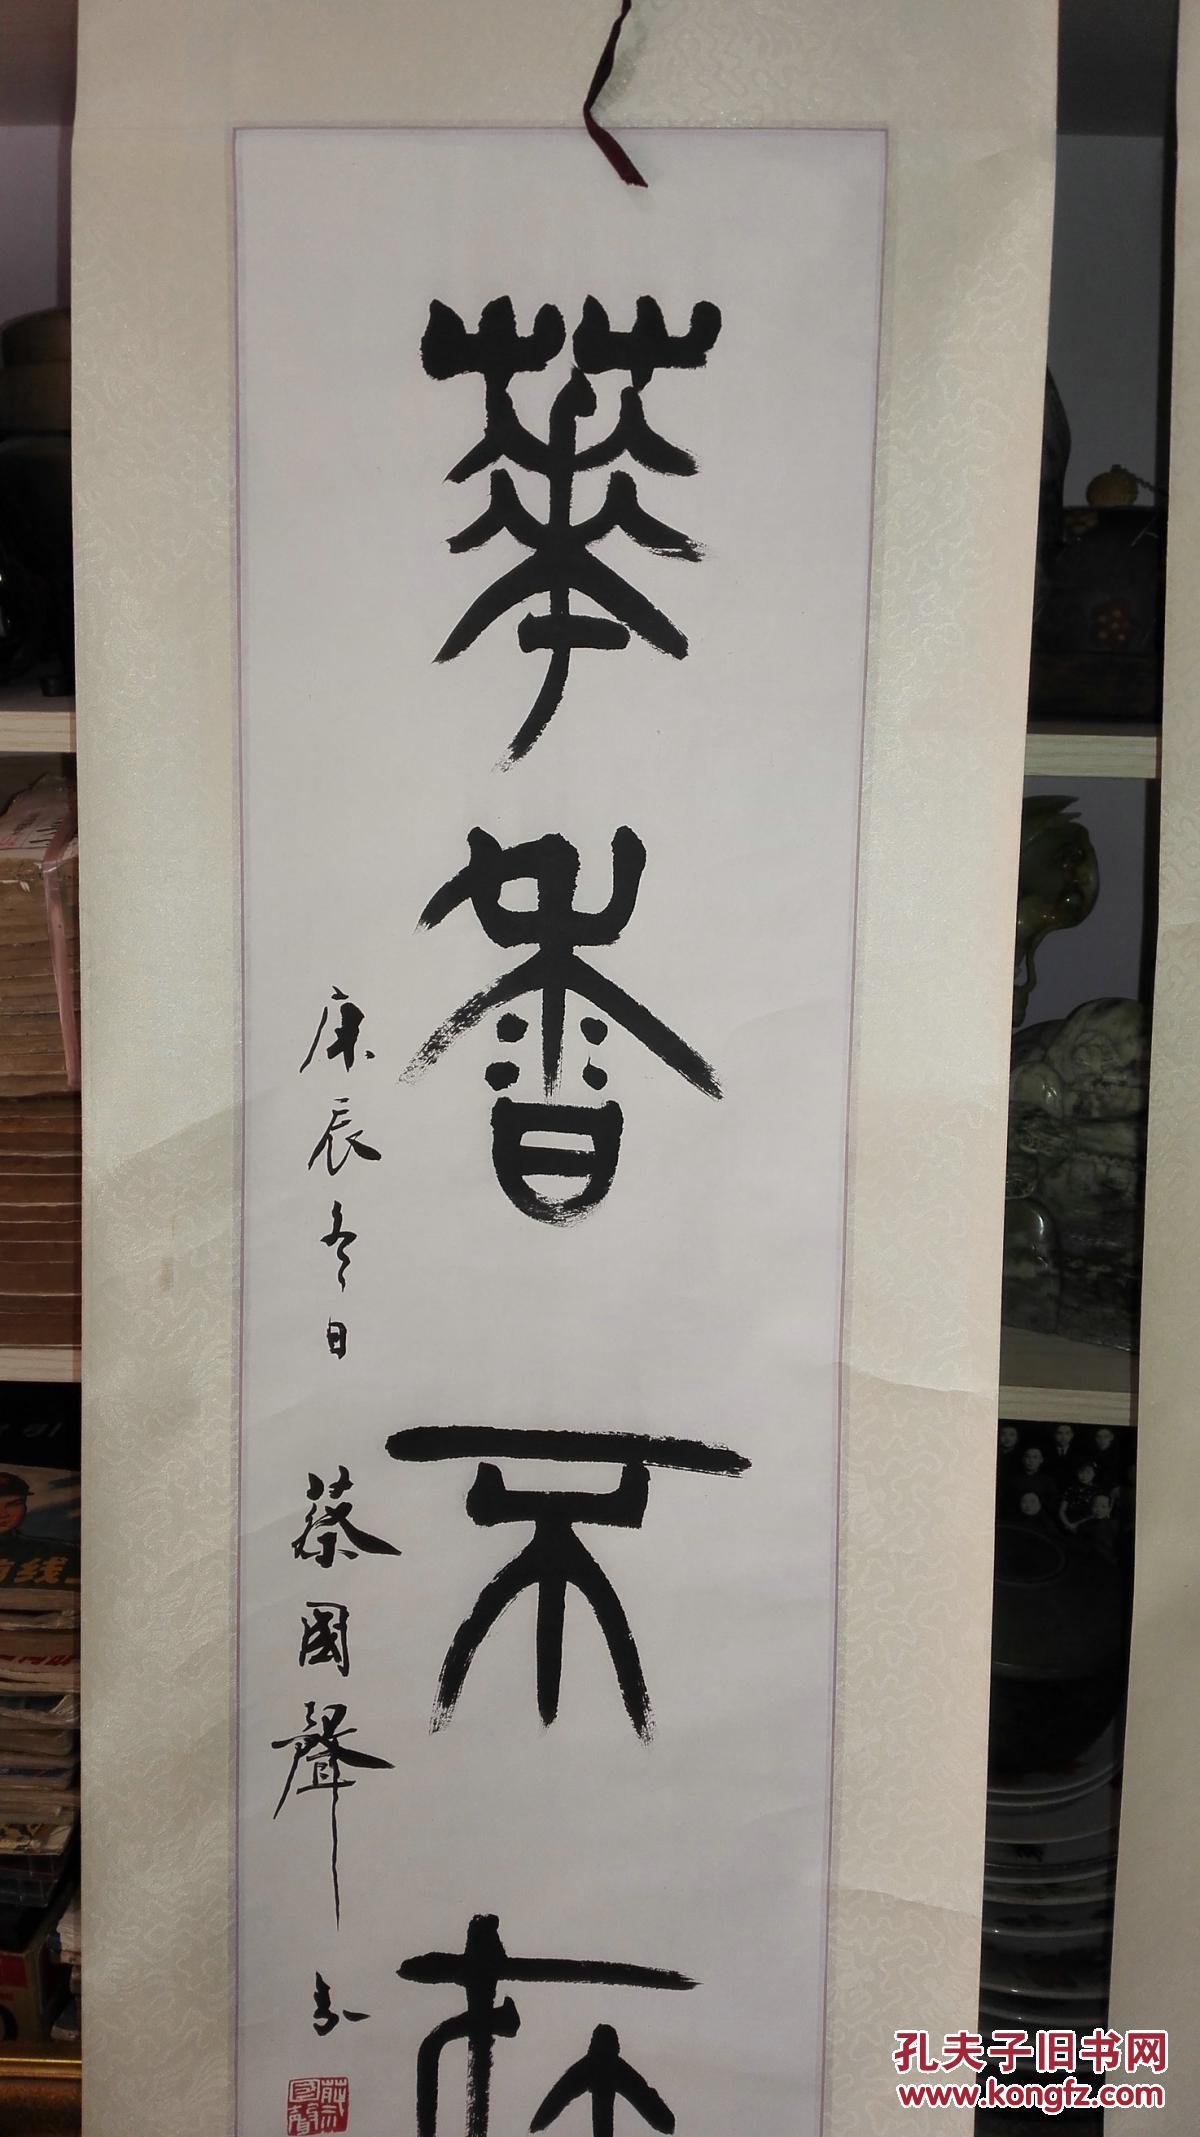 華香不在
庚辰冬日 蔡國聲
蔡國聲
孔夫子旧书网
www.kongfz.com